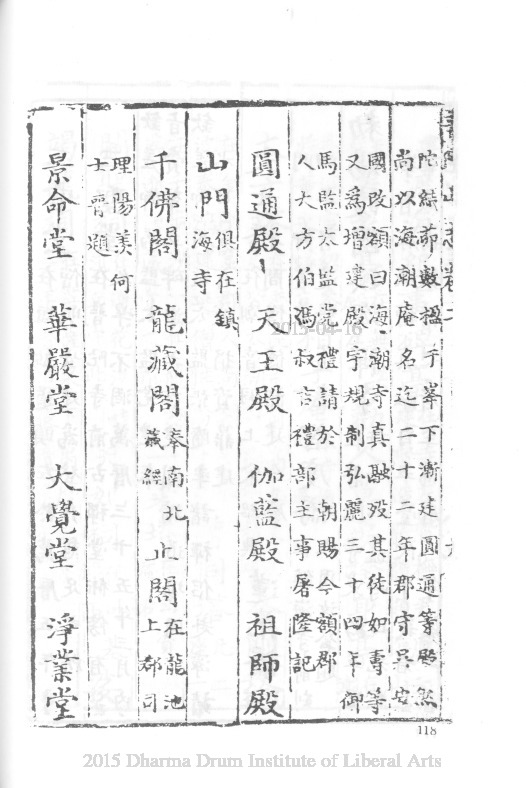 陀結茆數楹于峯下漸建圓通等殿然
尚以海潮庵名迄二十二年郡守吳安
國改額曰海潮寺真融歿其徒如壽等
又爲增建殿宇規制弘麗三十四年御
馬監太監党禮請於 朝賜今額郡
人大方伯馮叔吉禮部主事屠隆記
圓通殿 天王殿 伽藍殿 祖師殿
山門俱在鎮海寺
千佛閣 龍藏閣奉南北藏經 止閣在龍池上郡司
理陽羨何
士晉題
景命堂 華嚴堂 大覺堂 淨業堂
118
2015-04-16
2015 Dharma Drum Institute of Liberal Arts